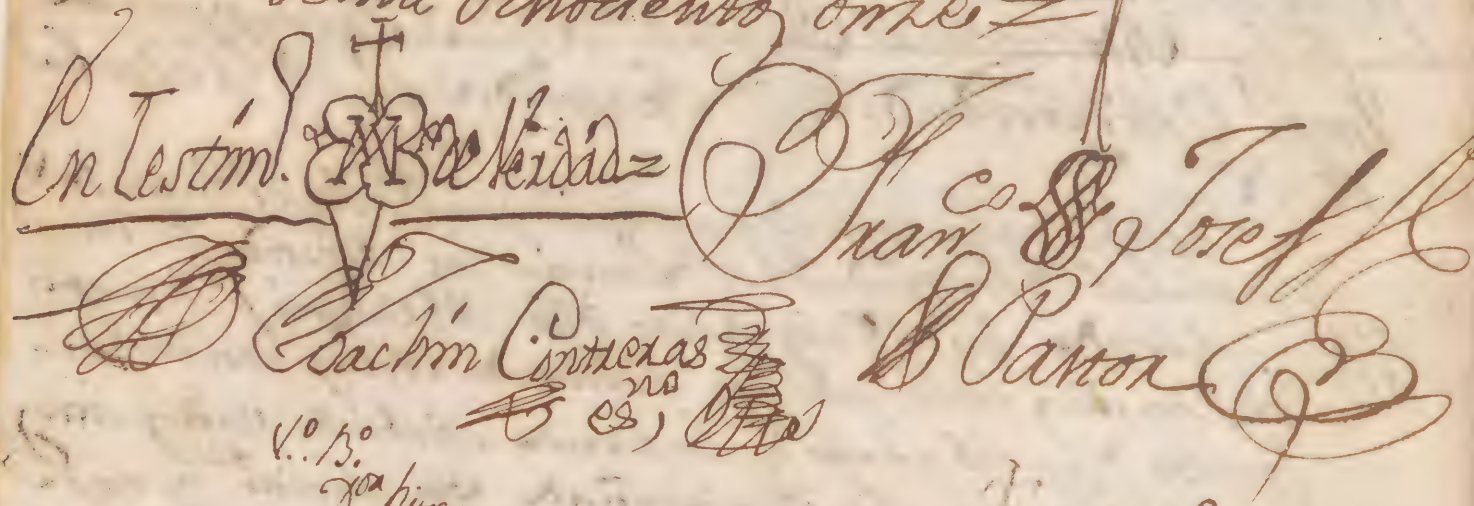 ochocientos onze
En Testim.o de Verdad
Fran.co Josef
Joachin Contreras
Pastor
es,no
V.o B.o